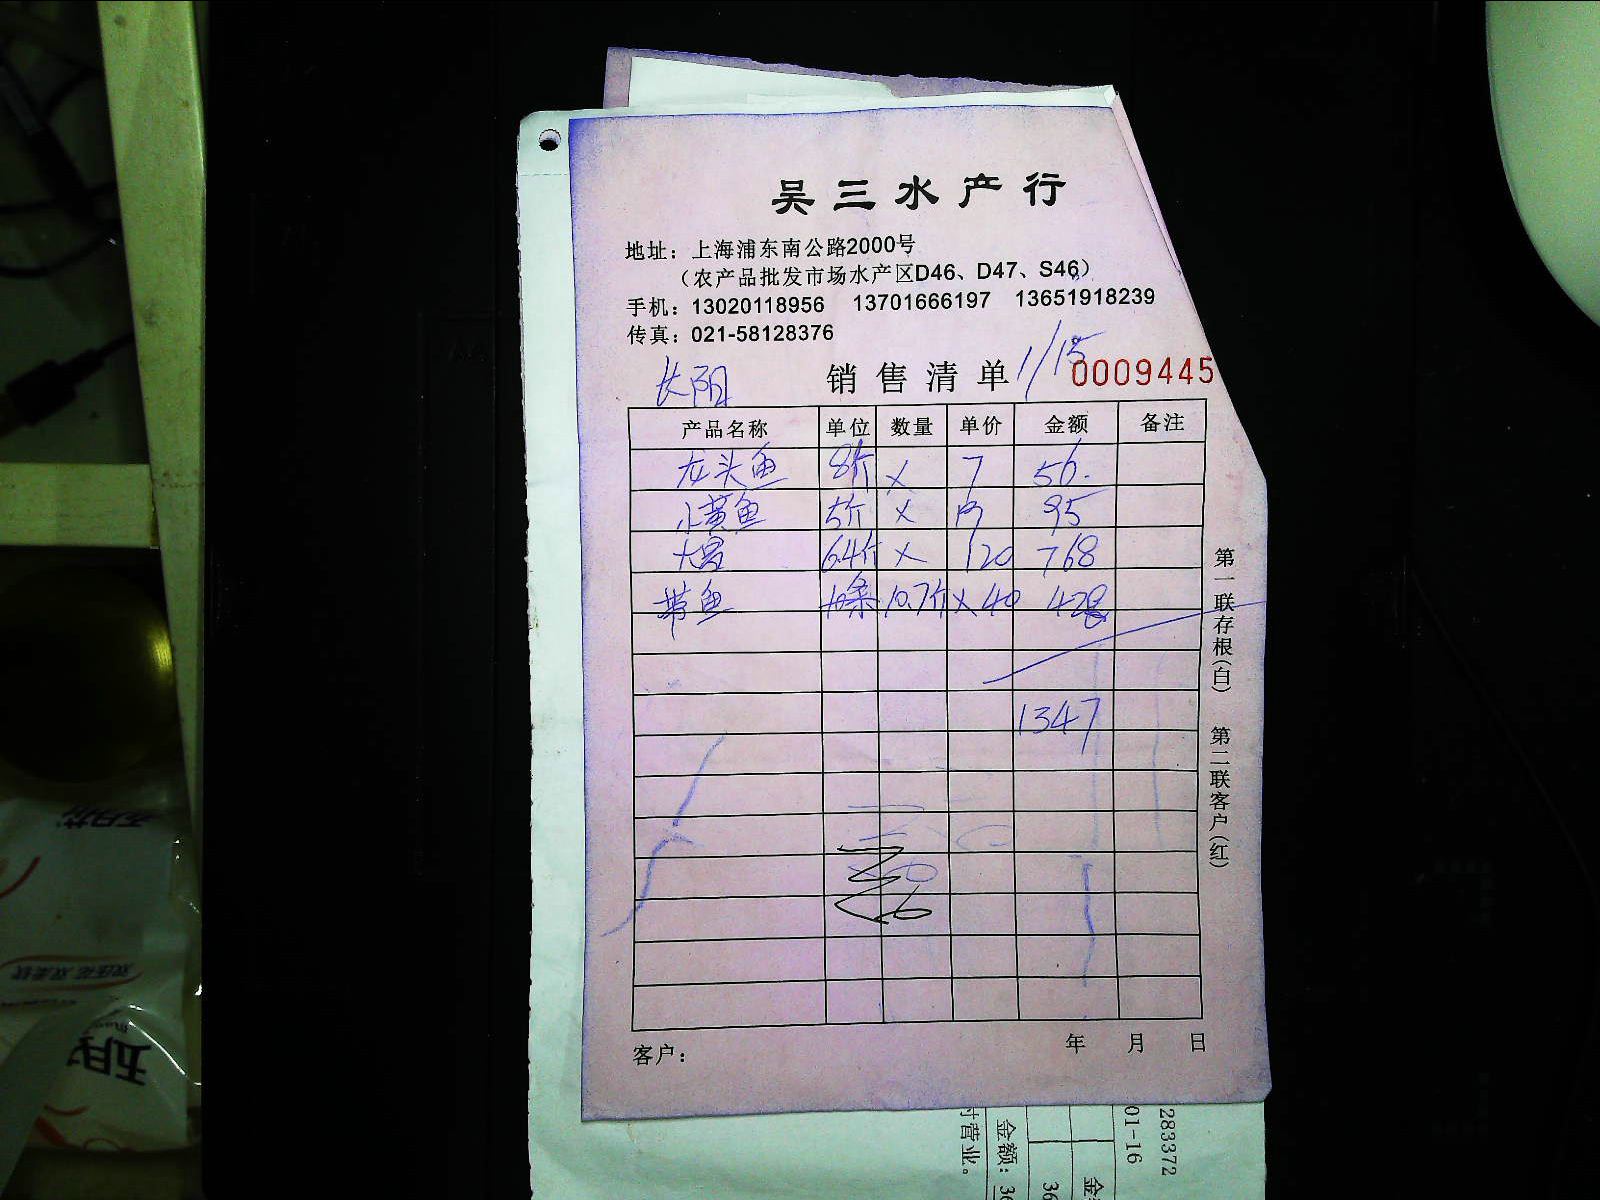 吴三水产行
地址：上海浦东南公路2000号
（农产品批发市场水产区D46、D47、S46）
手机：13020118956 13701666197 13651918239
传真：021-58128376
长阳 销售清单 1/15 0009445
产品名称 单位 数量 单价 金额 备注
龙头鱼 8斤 × 7 56.
小黄鱼 5斤 × 19 95
6.4斤 × 120 768
带鱼 10.7斤 × 40 428
1347
第一联存根（白） 第二联客户（红）
客户： 年 月 日
283372
01-16
金额：
时营业。
双柔软